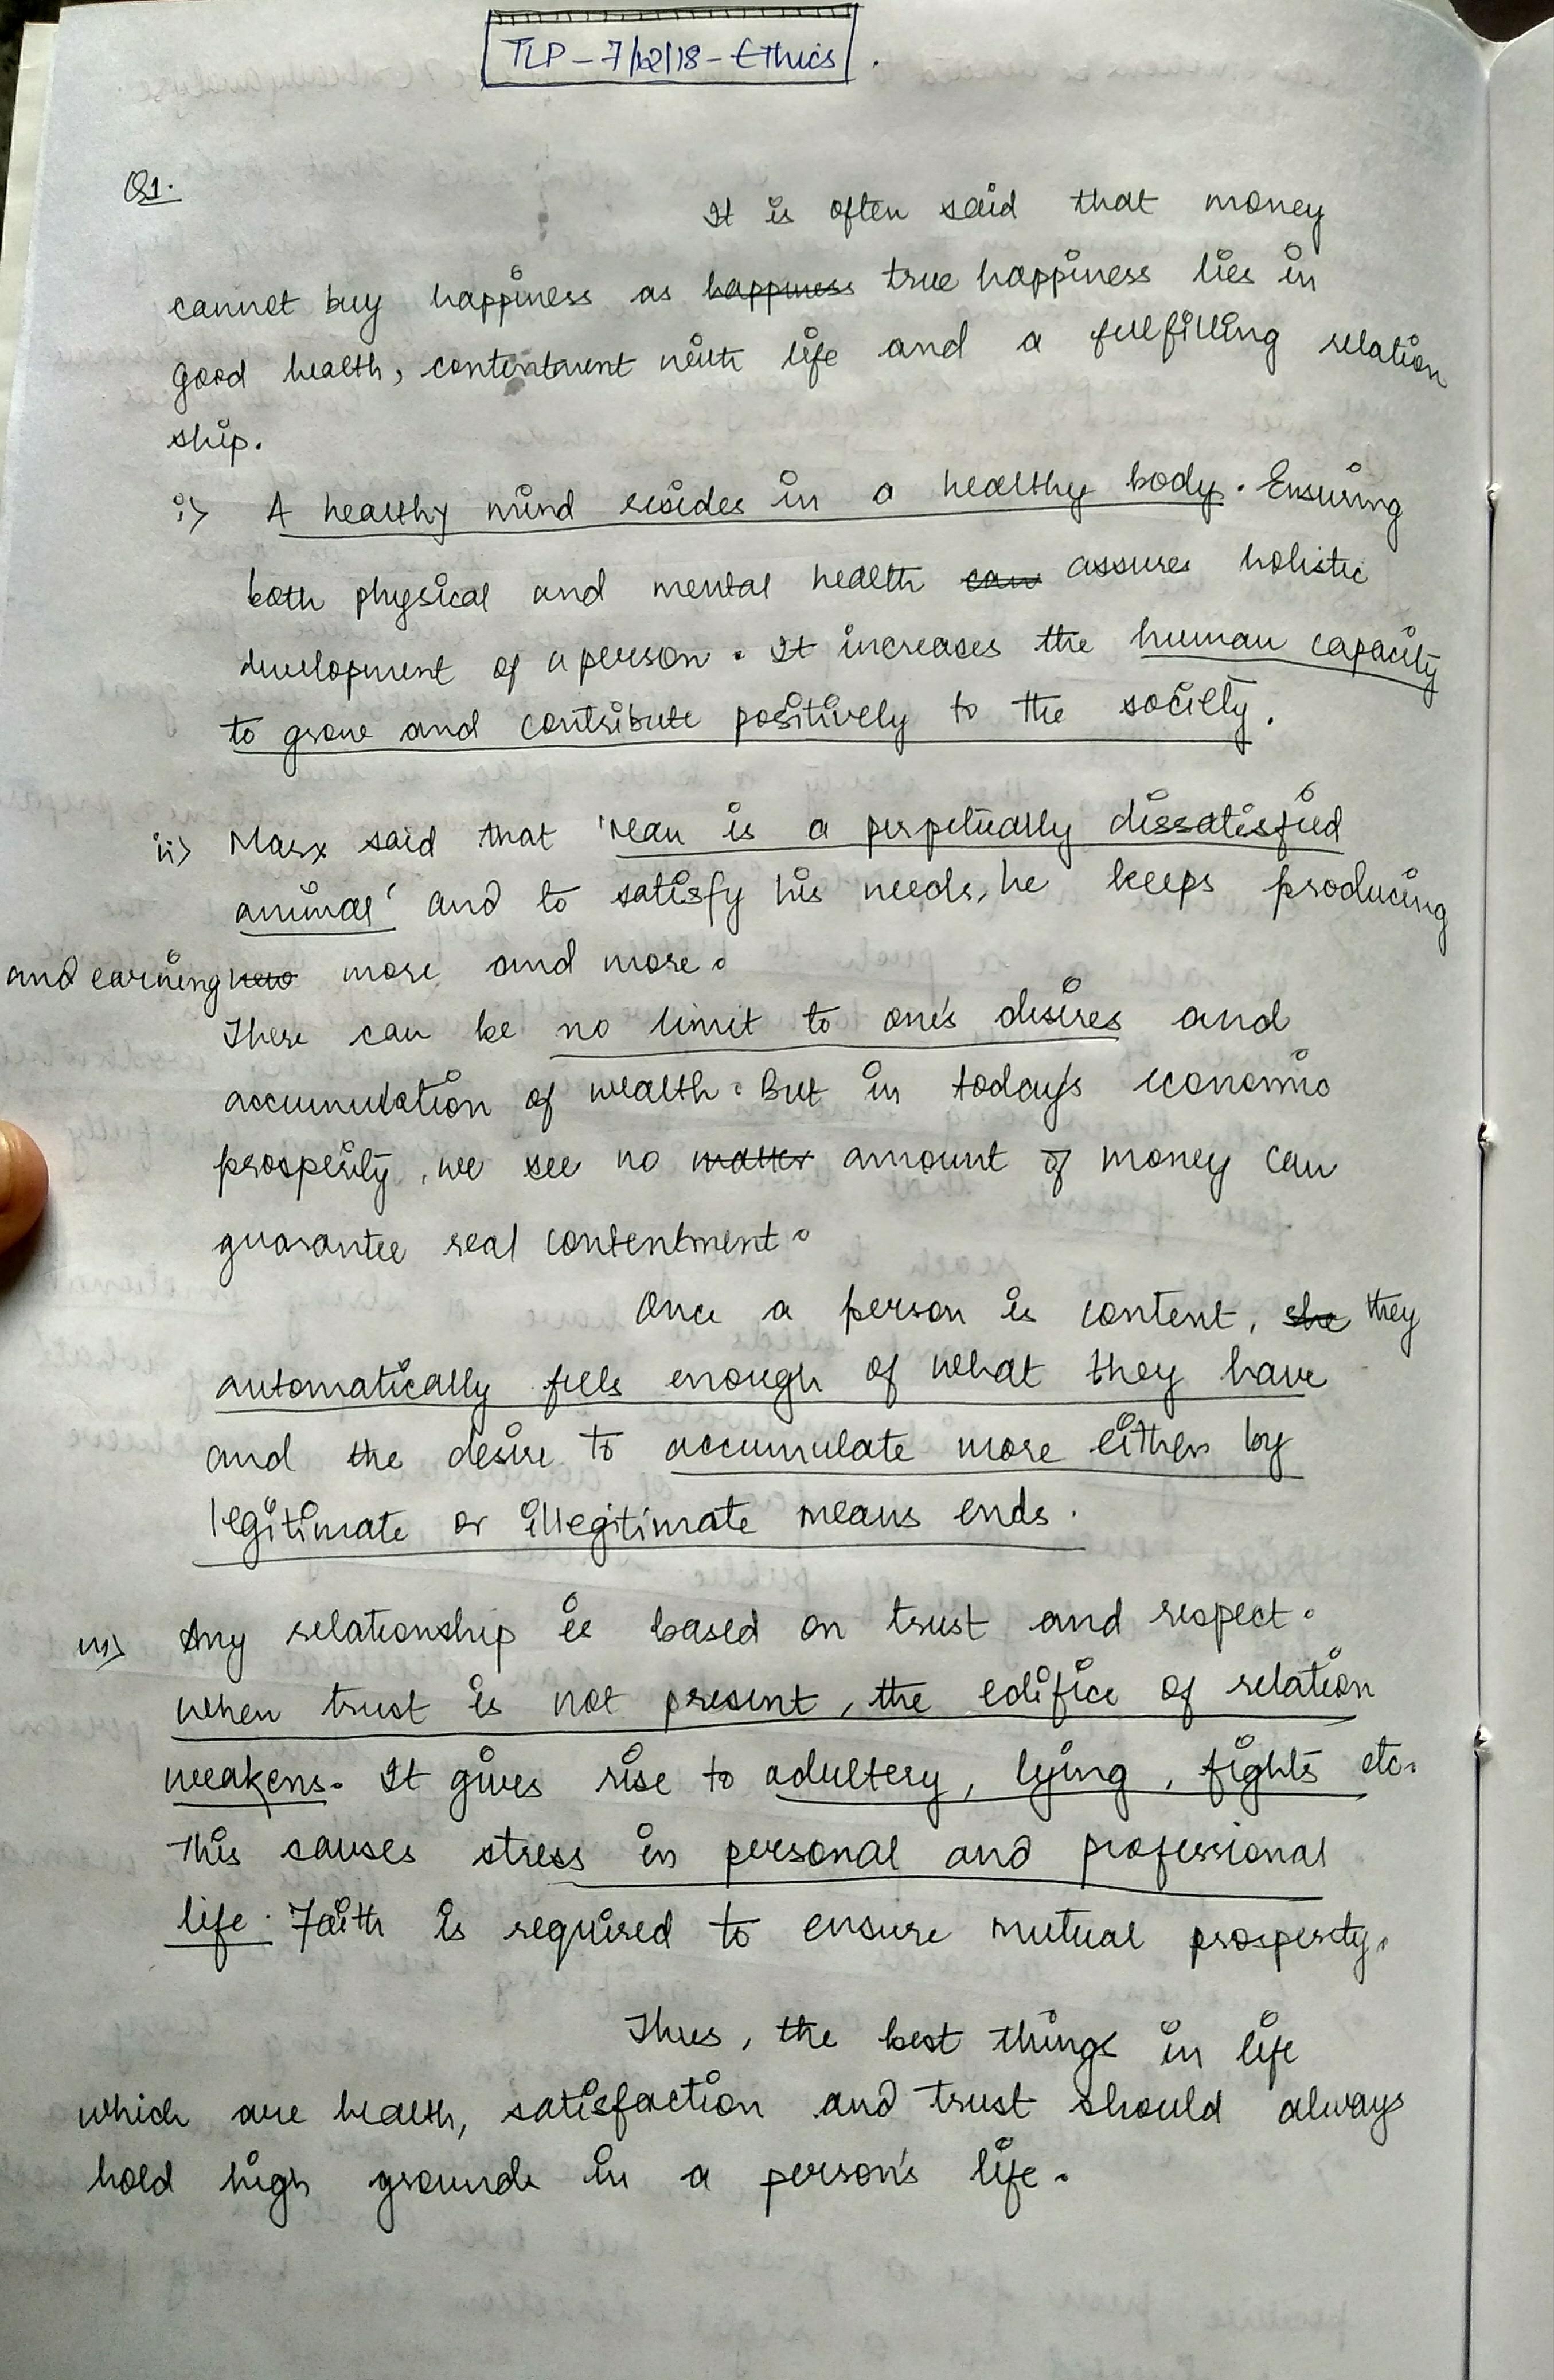 TLP - 7/12/18 - Ethics.
Q1.
It is often said that money
cannot buy happiness as happiness true happiness lies in
good health, contentment with life and a fulfilling relation
ship.
i> A healthy mind resides in a healthy body. Ensuring
both physical and mental health can assures holistic
development of a person. It increases the human capacity
to grow and contribute positively to the society.
ii> Marx said that 'Man is a perpetually dissatisfied
animal' and to satisfy his needs, he keeps producing
and earning more and more.
There can be no limit to one's desires and
accumulation of wealth. But in today's economic
prosperity, we see no matter amount of money can
guarantee real contentment.
Once a person is content, she they
automatically feels enough of what they have
and the desire to accumulate more either by
legitimate or illegitimate means ends.
iii> Any relationship is based on trust and respect.
When trust is not present, the edifice of relation
weakens. It gives rise to adultery, lying, fights etc.
This causes stress in personal and professional
life. Faith is required to ensure mutual prosperity.
Thus, the best things in life
which are health, satisfaction and trust should always
hold high grounds in a person's life.